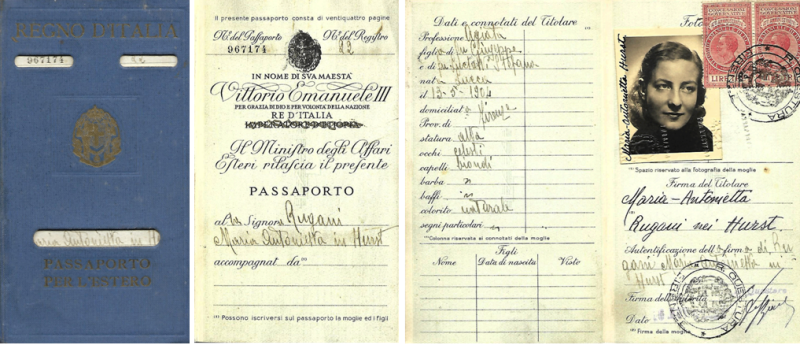 REGNO D'ITALIA
967174
Maria Antonietta in H
PASSAPORTO
PER L'ESTERO
Il presente passaporto consta di ventiquattro pagine
N.o del Passaporto N.o del Registro
967174
IN NOME DI SVA MAESTÀ
Vittorio Emanuele III
PER GRAZIA DI DIO E PER VOLONTÀ DELLA NAZIONE
RE D'ITALIA
Il Ministro degli Affari
Esteri rilascia il presente
PASSAPORTO
al Signor Rugani
Maria Antonietta in Hurst
accompagnat da
(*) Possono iscriversi sul passaporto la moglie ed i figli
Dati e connotati del Titolare
Professione Agiata
figlia di fu Giuseppe
e di
nat a Lucca
il 13-5-1904
domiciliat a Firenze
Prov. di
statura alta
occhi celesti
capelli biondi
barba
baffi
colorito naturale
segni particolari
(*) Colonna riservata ai connotati della moglie
Figli
Nome Data di nascita Visto
Foto
LIRE
Maria Antonietta Hurst
QUESTURA
(*) Spazio riservato alla fotografia della moglie
Firma del Titolare
Maria-Antonietta
Rugani nei Hurst
Autenticazione della firma di Ru
gani Maria Antonietta in
Hurst
Firma dell'
Data
QUESTURA
(*) Firma della moglie